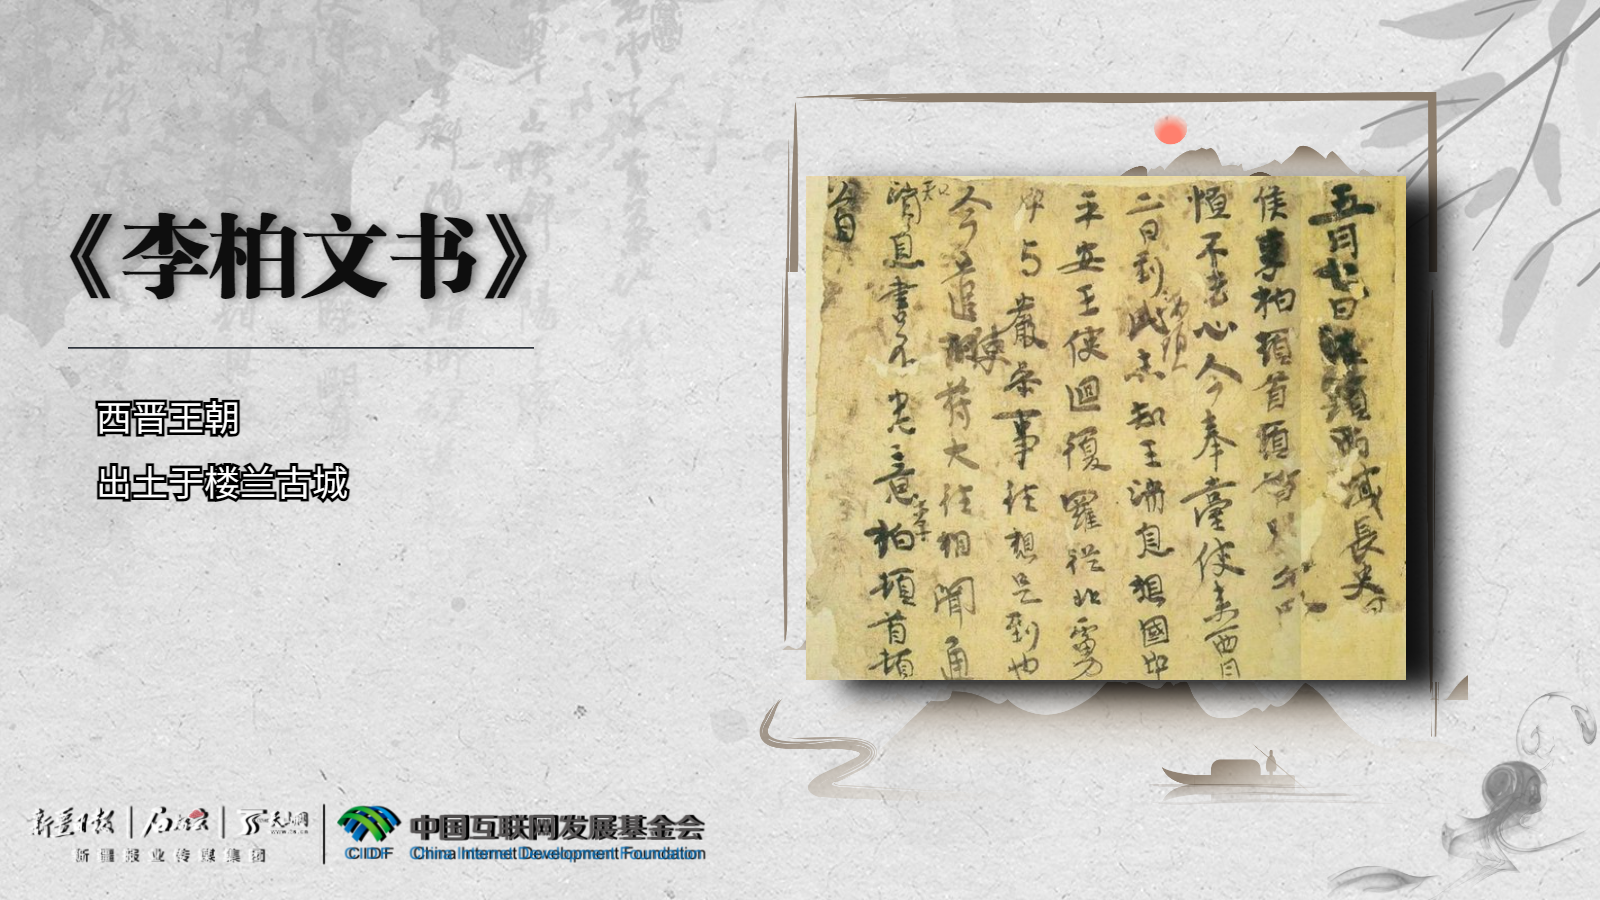 《李柏文书》
西晋王朝
出土于楼兰古城
五月七日 西域長史
侯李柏頓首頓首
恒不去心今奉臺使来西月
二日到此未知王消息想國中
平安王使迴復羅從北虜
中与嚴参事往想是到也
今 遣 使苻大往相聞通
知消息書不悉意李柏頓首頓
首
新疆日报
石榴云
天山网
新疆报业传媒集团
CIDF
中国互联网发展基金会
China Internet Development Foundation